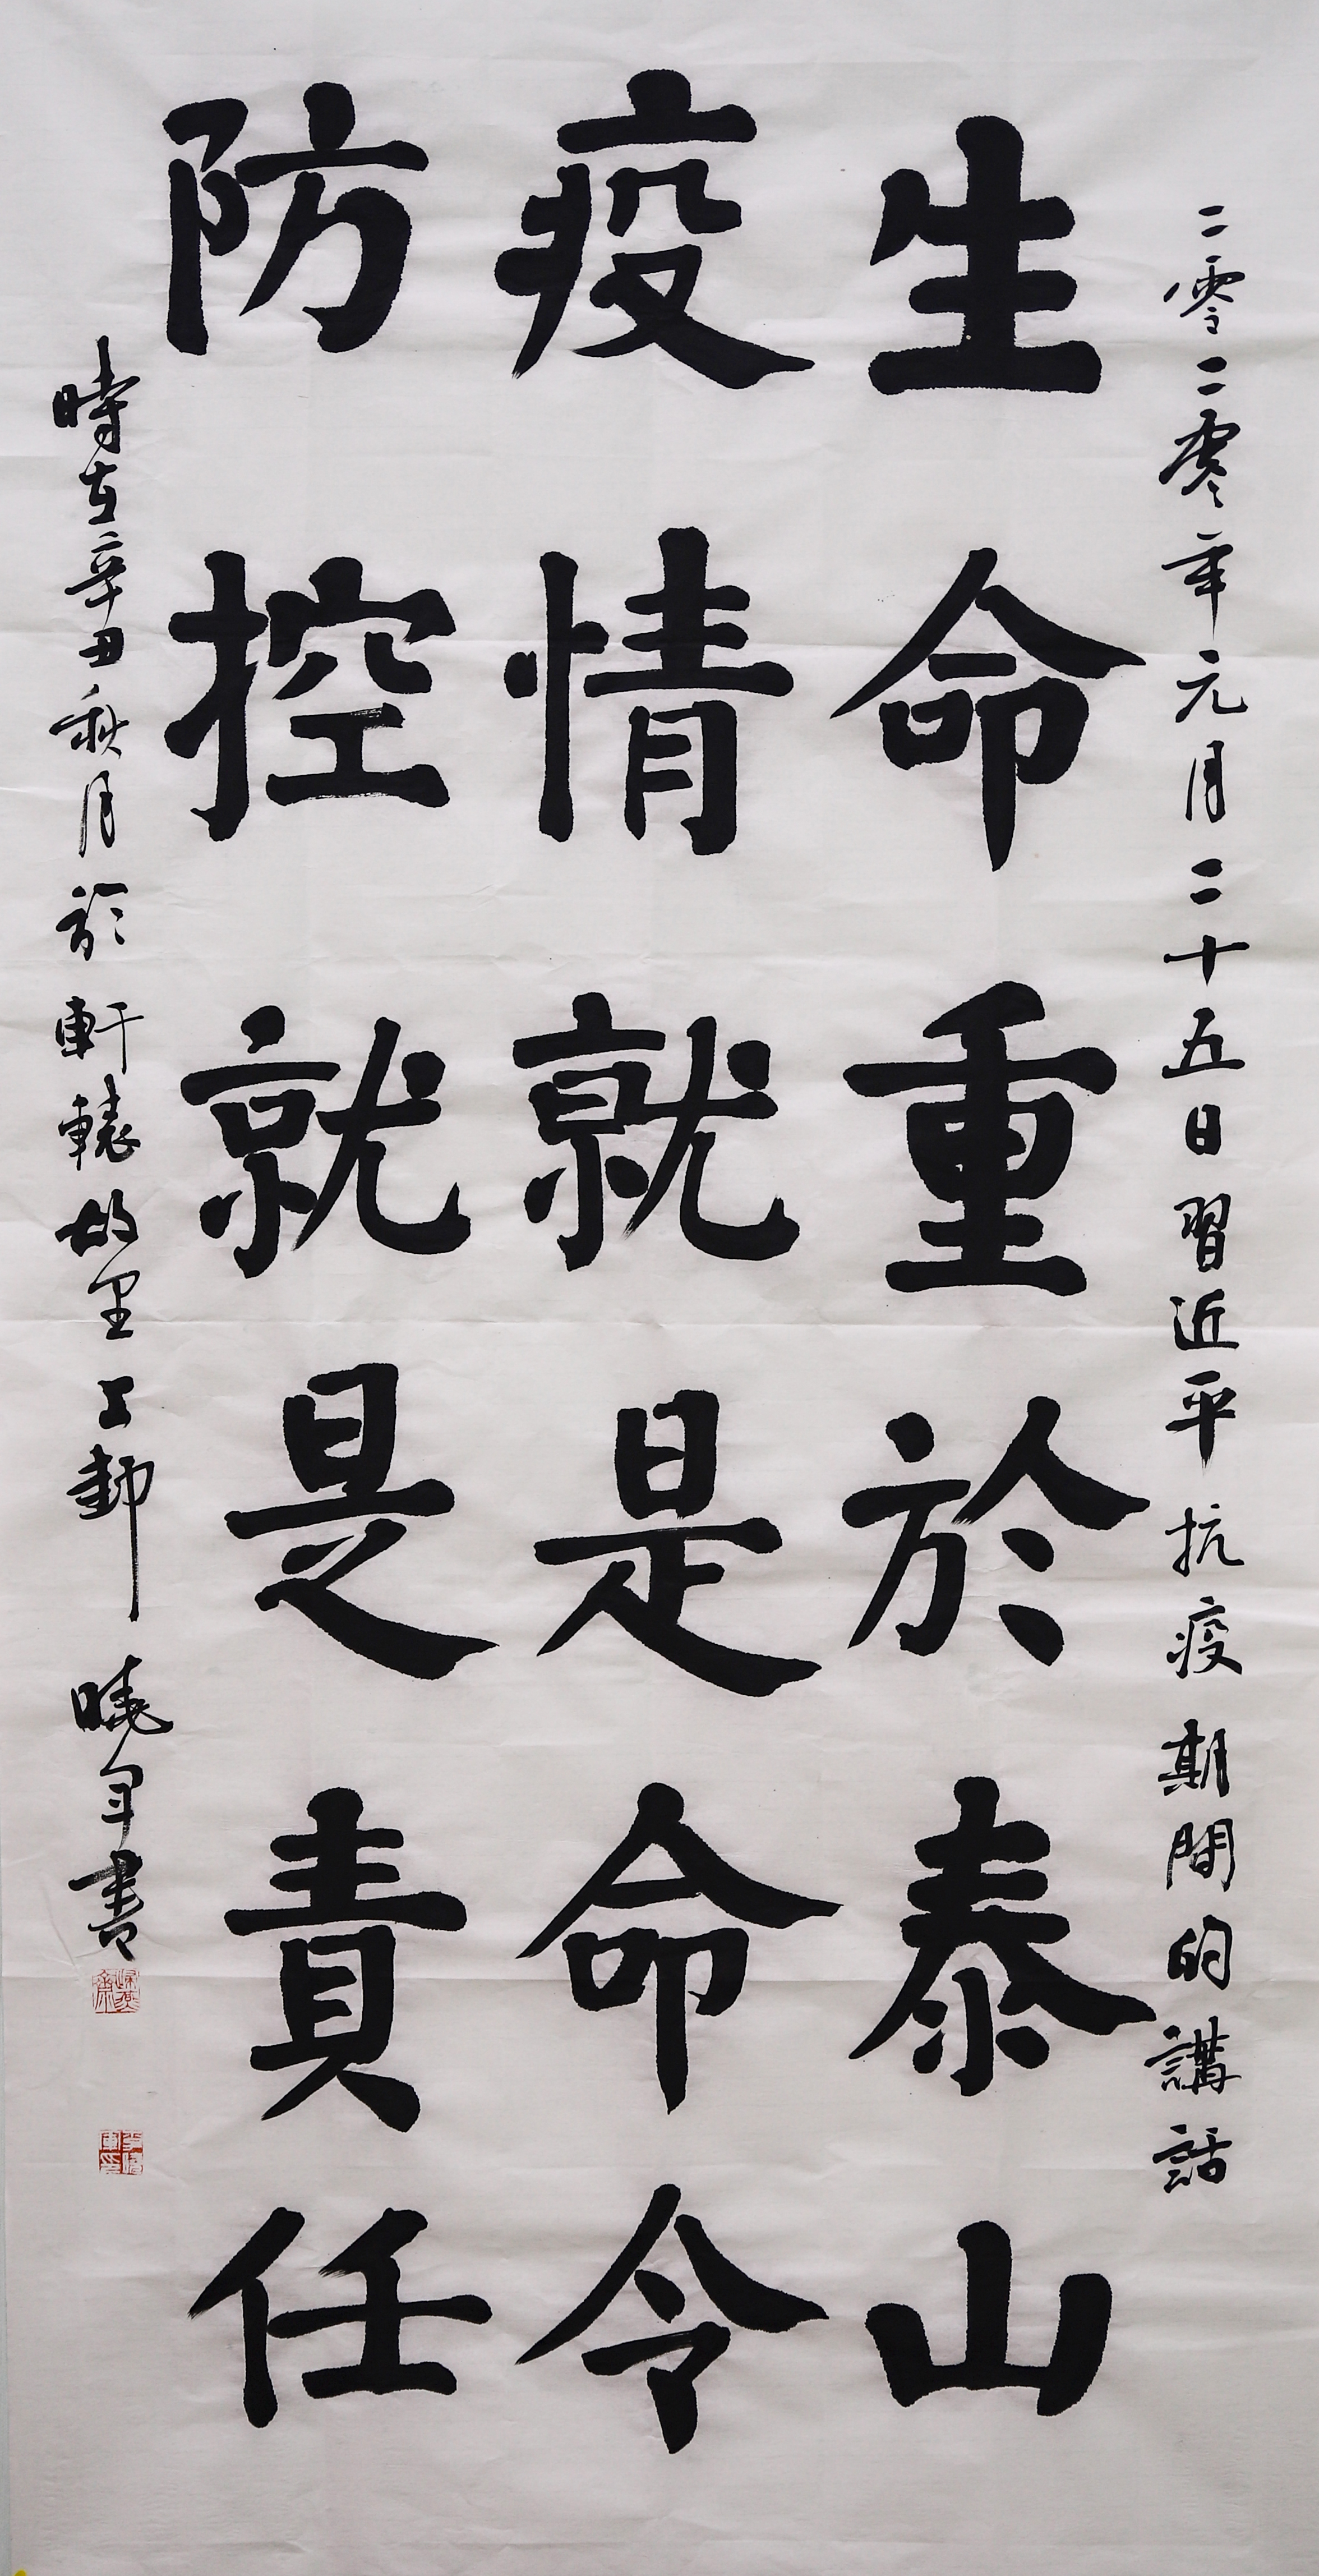 二零二零年元月二十五日習近平抗疫期間的講話
生命重於泰山
疫情就是命令
防控就是責任
時在辛丑秋月於軒轅故里 曉軍書